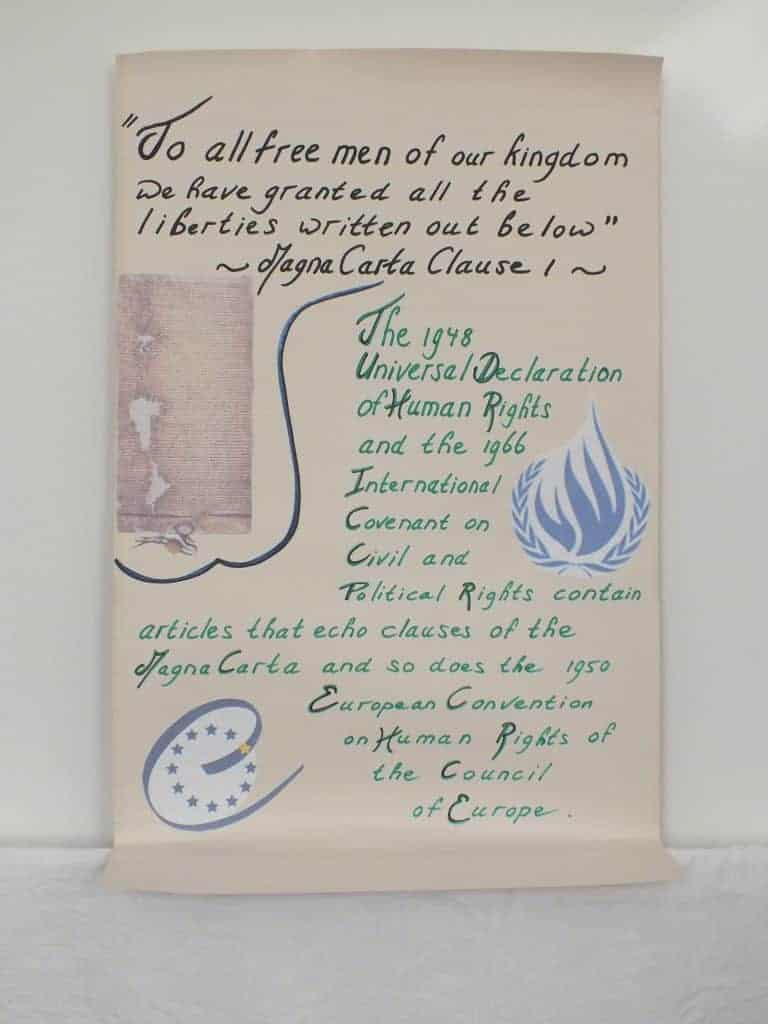 "To all free men of our kingdom
we have granted all the
liberties written out below"
~ Magna Carta Clause 1 ~
The 1948
Universal Declaration
of Human Rights
and the 1966
International
Covenant on
Civil and
Political Rights contain
articles that echo clauses of the
Magna Carta and so does the 1950
European Convention
on Human Rights of
the Council
of Europe.